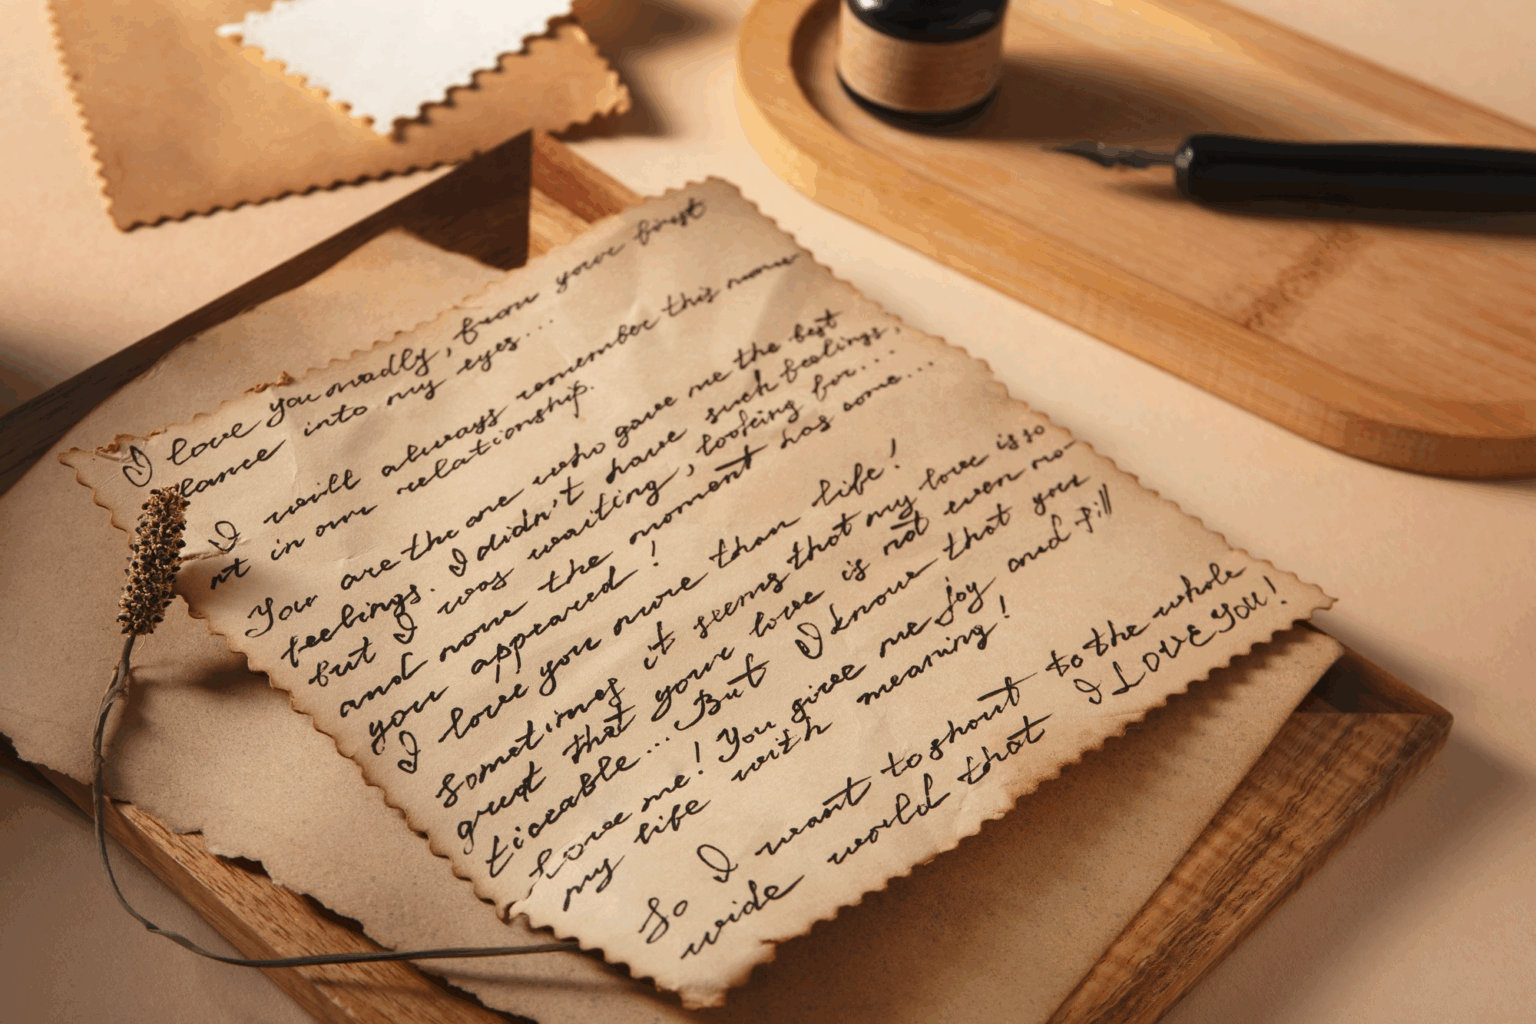 I love you madly, from your first
glance into my eyes...
I will always remember this mome
nt in our relationship.
You are the one who gave me the best
feelings. I didn't have such feelings,
but I was waiting, looking for...
and now the moment has come...
you appeared!
I love you more than life!
Sometimes it seems that my love is so
great that your love is not even no-
ticeable... But I know that you
love me! You give me joy and fill
my life with meaning!
So I want to shout to the whole
wide world that I LOVE YOU!